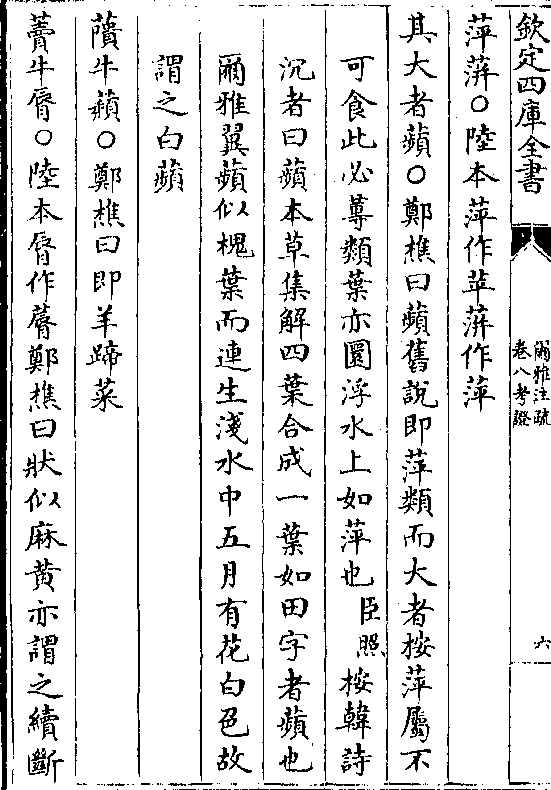 欽定四庫全書
爾雅注疏
卷八考證
六
萍蓱○陸本萍作苹蓱作萍
其大者蘋○鄭樵曰蘋舊說即萍類而大者按萍屬不
可食此必蓴類葉亦圓浮水上如萍也臣照按韓詩
沉者曰蘋本草集解四葉合成一葉如田字者蘋也
爾雅翼蘋似槐葉而連生淺水中五月有花白色故
謂之白蘋
藬牛蘈○鄭樵曰即羊蹄菜
虋牛脣○陸本脣作蓐鄭樵曰狀似麻黃亦謂之續斷